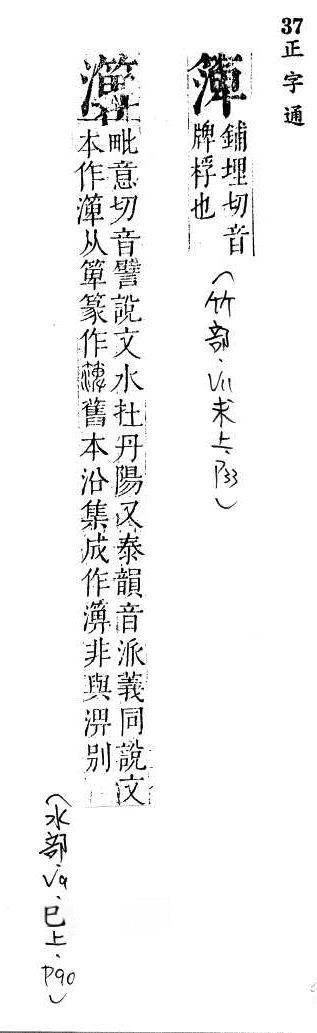 37 正字通
箄
鋪埋切音
牌桴也
(竹部.VII未上.P33)
毗意切音譬說文水在丹陽又泰韻音派義同說文
本作从箄篆作舊本沿集成作非與淠別
(水部.V9.巳上.P90)